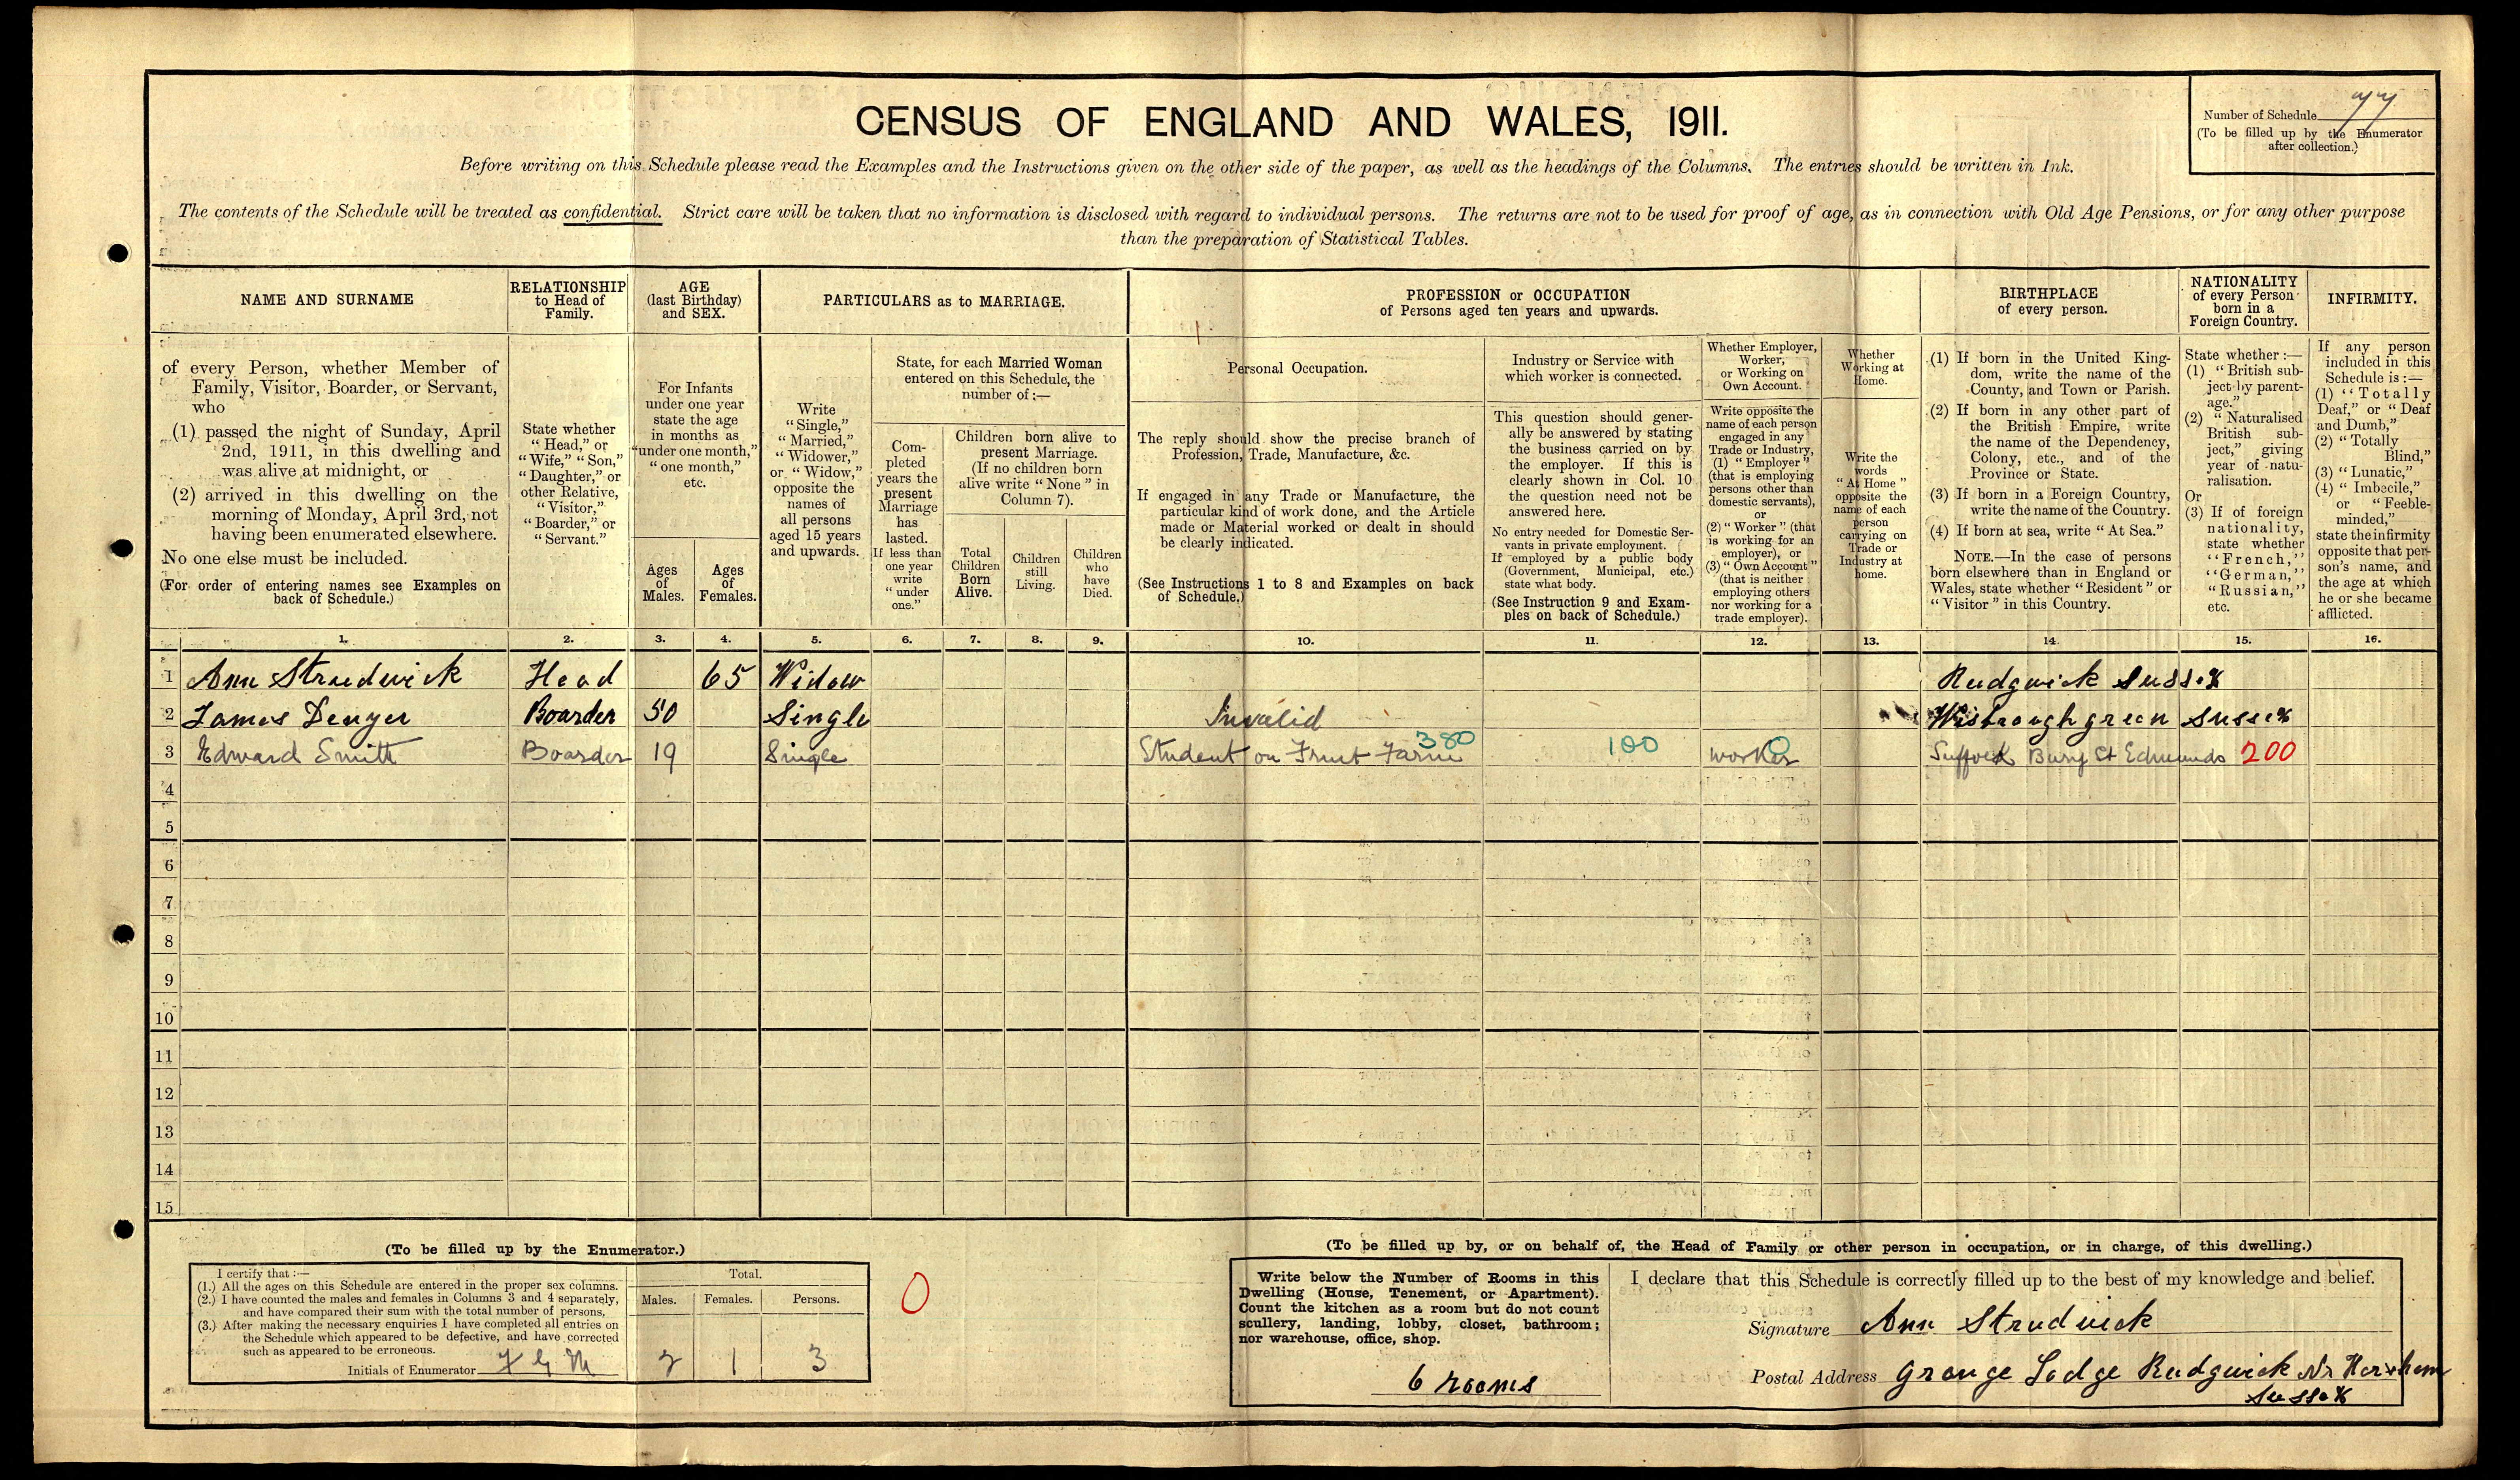 CENSUS OF ENGLAND AND WALES, 1911.
Number of Schedule 77
(To be filled up by the Enumerator
after collection.)
Before writing on this Schedule please read the Examples and the Instructions given on the other side of the paper, as well as the headings of the Columns. The entries should be written in Ink.
The contents of the Schedule will be treated as confidential. Strict care will be taken that no information is disclosed with regard to individual persons. The returns are not to be used for proof of age, as in connection with Old Age Pensions, or for any other purpose
than the preparation of Statistical Tables.
NAME AND SURNAME
of every Person, whether Member of
Family, Visitor, Boarder, or Servant,
who
(1) passed the night of Sunday, April
2nd, 1911, in this dwelling and
was alive at midnight, or
(2) arrived in this dwelling on the
morning of Monday, April 3rd, not
having been enumerated elsewhere.
No one else must be included.
(For order of entering names see Examples on
back of Schedule.)
RELATIONSHIP
to Head of
Family.
State whether
"Head," or
"Wife," "Son,"
"Daughter," or
other Relative,
"Visitor,"
"Boarder," or
"Servant."
AGE
(last Birthday)
and SEX.
For Infants
under one year
state the age
in months as
"under one month,"
"one month,"
etc.
Ages
of
Males.
Ages
of
Females.
PARTICULARS as to MARRIAGE.
Write
"Single,"
"Married,"
"Widower,"
or "Widow,"
opposite the
names of
all persons
aged 15 years
and upwards.
State, for each Married Woman
entered on this Schedule, the
number of:—
Com-
pleted
years the
present
Marriage
has
lasted.
If less than
one year
write
"under
one."
Children born alive to
present Marriage.
(If no children born
alive write "None" in
Column 7).
Total
Children
Born
Alive.
Children
still
Living.
Children
who
have
Died.
PROFESSION or OCCUPATION
of Persons aged ten years and upwards.
Personal Occupation.
The reply should show the precise branch of
Profession, Trade, Manufacture, &c.
If engaged in any Trade or Manufacture, the
particular kind of work done, and the Article
made or Material worked or dealt in should
be clearly indicated.
(See Instructions 1 to 8 and Examples on back
of Schedule.)
Industry or Service with
which worker is connected.
This question should gener-
ally be answered by stating
the business carried on by
the employer. If this is
clearly shown in Col. 10
the question need not be
answered here.
No entry needed for Domestic Ser-
vants in private employment.
If employed by a public body
(Government, Municipal, etc.)
state what body.
(See Instruction 9 and Exam-
ples on back of Schedule.)
Whether Employer,
Worker,
or Working on
Own Account.
Write opposite the
name of each person
engaged in any
Trade or Industry,
(1) "Employer"
(that is employing
persons other than
domestic servants),
or
(2) "Worker" (that
is working for an
employer), or
(3) "Own Account"
(that is neither
employing others
nor working for a
trade employer).
Whether
Working at
Home.
Write the
words
"At Home"
opposite the
name of each
person
carrying on
Trade or
Industry at
home.
BIRTHPLACE
of every person.
(1) If born in the United King-
dom, write the name of the
County, and Town or Parish.
(2) If born in any other part of
the British Empire, write
the name of the Dependency,
Colony, etc., and of the
Province or State.
(3) If born in a Foreign Country,
write the name of the Country.
(4) If born at sea, write "At Sea."
NOTE.—In the case of persons
born elsewhere than in England or
Wales, state whether "Resident" or
"Visitor" in this Country.
NATIONALITY
of every Person
born in a
Foreign Country.
State whether:—
(1) "British sub-
ject by parent-
age."
(2) "Naturalised
British sub-
ject," giving
year of natu-
ralisation.
Or
(3) If of foreign
nationality,
state whether
"French,"
"German,"
"Russian,"
etc.
INFIRMITY.
If any person
included in this
Schedule is:—
(1) "Totally
Deaf," or "Deaf
and Dumb,"
(2) "Totally
Blind,"
(3) "Lunatic,"
(4) "Imbecile,"
or "Feeble-
minded,"
state the infirmity
opposite that per-
son's name, and
the age at which
he or she became
afflicted.
1. 2. 3. 4. 5. 6. 7. 8. 9. 10. 11. 12. 13. 14. 15. 16.
1 Ann Strudwick Head 65 Widow Rudgwick Sussex
2 James Denyer Boarder 50 Single Invalid Wisbrough green Sussex
3 Edward Smith Boarder 19 Single Student on Fruit Farm 380 100 worker Suffolk Bury St Edmunds 200
4
5
6
7
8
9
10
11
12
13
14
15
(To be filled up by the Enumerator.)
I certify that:—
(1.) All the ages on this Schedule are entered in the proper sex columns.
(2.) I have counted the males and females in Columns 3 and 4 separately,
and have compared their sum with the total number of persons,
(3.) After making the necessary enquiries I have completed all entries on
the Schedule which appeared to be defective, and have corrected
such as appeared to be erroneous.
Initials of Enumerator
Total.
Males. Females. Persons.
2 1 3
0
(To be filled up by, or on behalf of, the Head of Family or other person in occupation, or in charge, of this dwelling.)
Write below the Number of Rooms in this
Dwelling (House, Tenement, or Apartment).
Count the kitchen as a room but do not count
scullery, landing, lobby, closet, bathroom;
nor warehouse, office, shop.
6 rooms
I declare that this Schedule is correctly filled up to the best of my knowledge and belief.
Signature Ann Strudwick
Postal Address Grange Lodge Rudgwick Nr Horsham
Sussex